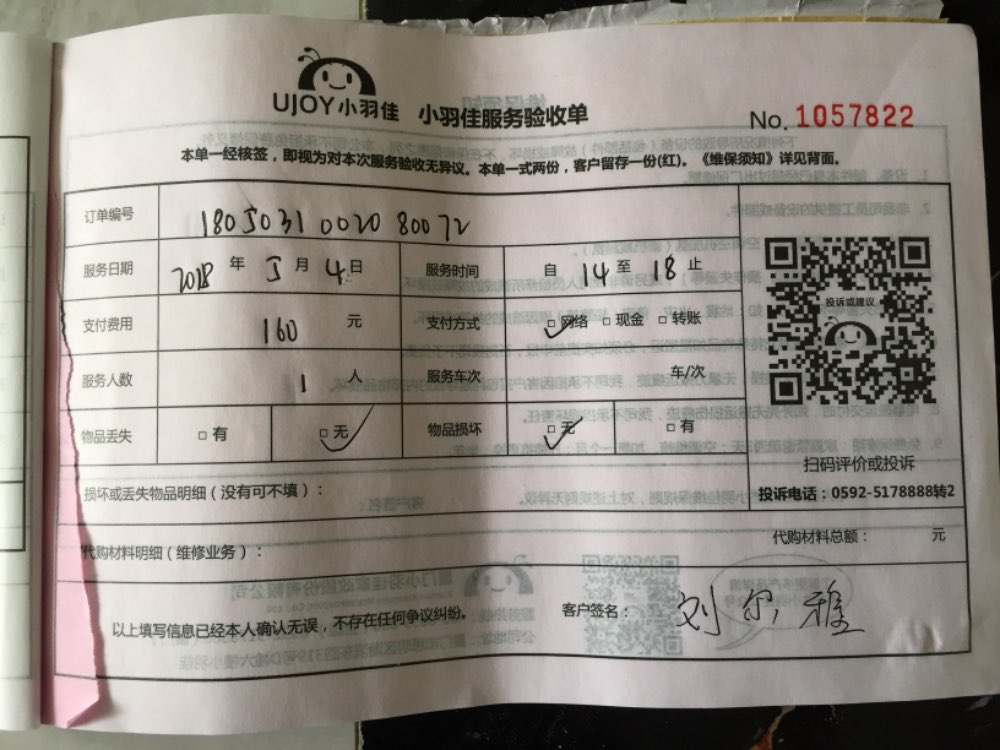 UJOY小羽佳 小羽佳服务验收单 No. 1057822
本单一经核签，即视为对本次服务验收无异议。本单一式两份，客户留存一份(红)。《维保须知》详见背面。
订单编号 1805031002080072
服务日期 2018 年 5 月 4 日 服务时间 自 14 至 18 止
支付费用 160 元 支付方式 □网络 □现金 □转账
服务人数 1 人 服务车次 车/次
物品丢失 □有 □无 物品损坏 □无 □有
投诉或建议
扫码评价或投诉
投诉电话：0592-5178888转2
损坏或丢失物品明细（没有可不填）：
代购材料明细（维修业务）： 代购材料总额： 元
以上填写信息已经本人确认无误，不存在任何争议纠纷。 客户签名： 刘尔雅